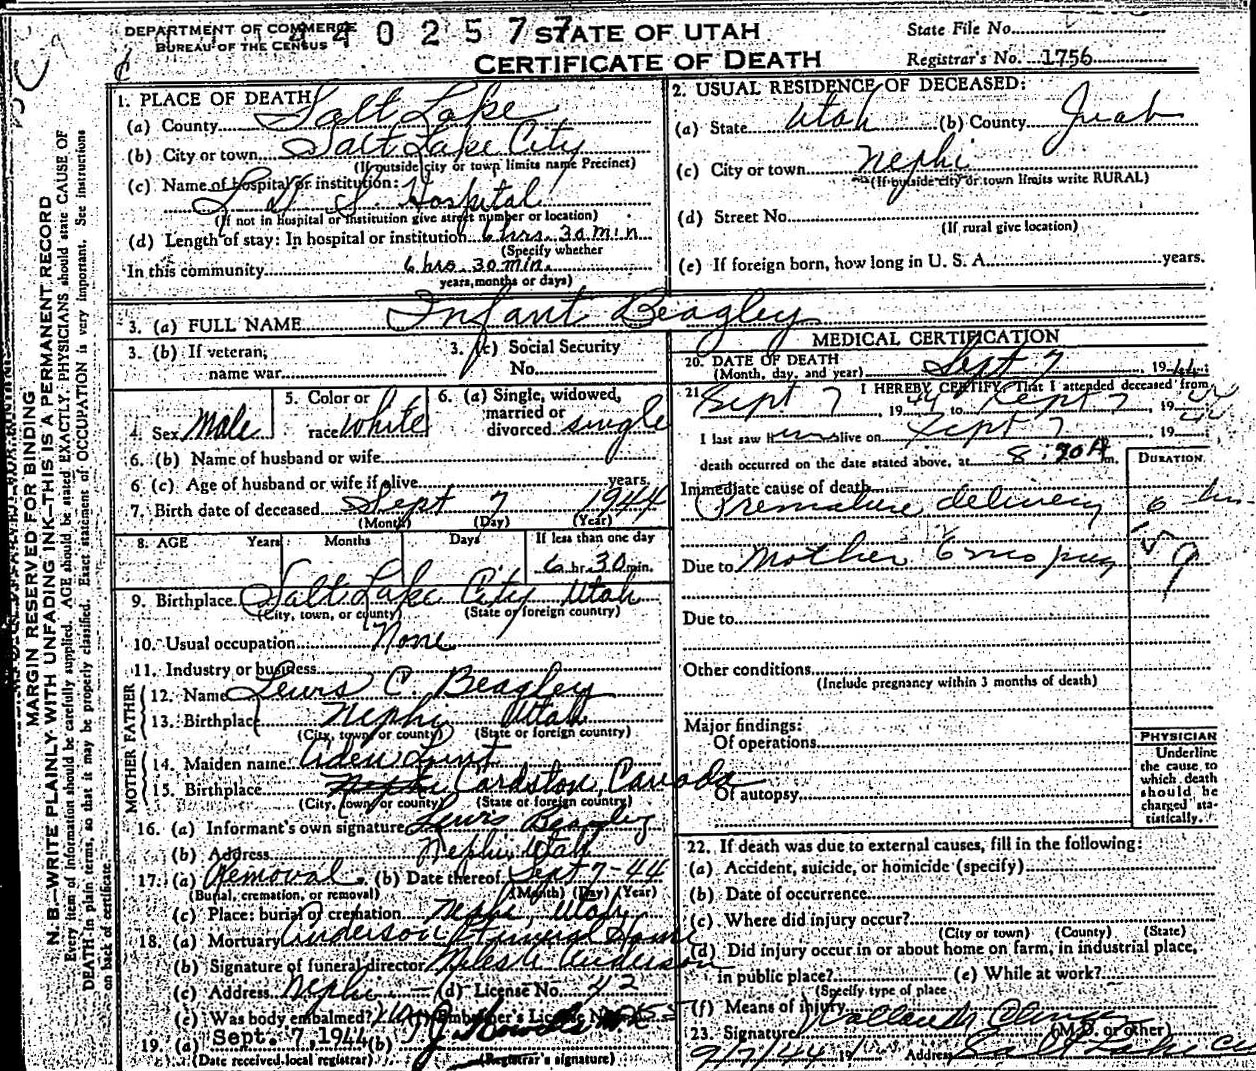 DEPARTMENT OF COMMERCE
BUREAU OF THE CENSUS
4 4 0 2 5 7 7
STATE OF UTAH
CERTIFICATE OF DEATH
State File No.
Registrar's No. 1756
MARGIN RESERVED FOR BINDING
N. B.—WRITE PLAINLY WITH UNFADING INK—THIS IS A PERMANENT RECORD
Every item of information should be carefully supplied. AGE should be stated EXACTLY. PHYSICIANS should state CAUSE OF
DEATH in plain terms, so that it may be properly classified. Exact statement of OCCUPATION is very important. See instructions
on back of certificate.
1. PLACE OF DEATH
(a) County Salt Lake
(b) City or town Salt Lake City
(If outside city or town limits name Precinct)
(c) Name of hospital or institution:
L. D. S. Hospital
(If not in hospital or institution give street number or location)
(d) Length of stay: In hospital or institution 6 hrs. 30 min
(Specify whether
In this community 6 hrs 30 min.
years, months or days)
2. USUAL RESIDENCE OF DECEASED:
(a) State Utah (b) County Juab
(c) City or town Nephi
(If outside city or town limits write RURAL)
(d) Street No.
(If rural give location)
(e) If foreign born, how long in U. S. A. years.
3. (a) FULL NAME Infant Beagley
3. (b) If veteran, name war
3. (c) Social Security No.
4. Sex Male
5. Color or race White
6. (a) Single, widowed, married or divorced single
6. (b) Name of husband or wife
6. (c) Age of husband or wife if alive years
7. Birth date of deceased Sept 7 1944
(Month) (Day) (Year)
8. AGE Years Months Days If less than one day
6 hr. 30 min.
9. Birthplace Salt Lake City Utah
(City, town, or county) (State or foreign country)
10. Usual occupation None
11. Industry or business
FATHER
12. Name Lewis C. Beagley
13. Birthplace Nephi Utah
(City, town or county) (State or foreign country)
MOTHER
14. Maiden name Lunt
15. Birthplace Nephi Cardston, Canada
(City, town or county) (State or foreign country)
16. (a) Informant's own signature Lewis Beagley
(b) Address Nephi, Utah
17. (a) Removal (b) Date thereof Sept 7-44
(Burial, cremation, or removal) (Month) (Day) (Year)
(c) Place: burial or cremation Nephi, Utah
18. (a) Mortuary Anderson Funeral Home
(b) Signature of funeral director Anderson
(c) Address Nephi (d) License No.
(e) Was body embalmed? (f) Embalmer's License No.
19. (a) Sept. 7, 1944 (b)
(Date received local registrar) (Registrar's signature)
MEDICAL CERTIFICATION
20. DATE OF DEATH Sept 7, 1944
(Month, day, and year)
21. I HEREBY CERTIFY, That I attended deceased from
Sept 7, 1944 to Sept 7, 1944
I last saw him alive on Sept 7, 1944
death occurred on the date stated above, at 8:30 A m.
DURATION
Immediate cause of death
Premature delivery 6 hrs
Due to Mother 6 mos preg
159
Due to
Other conditions
(Include pregnancy within 3 months of death)
Major findings:
Of operations
Of autopsy
PHYSICIAN
Underline
the cause to
which death
should be
charged sta-
tistically.
22. If death was due to external causes, fill in the following:
(a) Accident, suicide, or homicide (specify)
(b) Date of occurrence
(c) Where did injury occur?
(City or town) (County) (State)
(d) Did injury occur in or about home on farm, in industrial place,
in public place? (e) While at work?
(Specify type of place
(f) Means of injury
23. Signature
(M.D. or other)
9/7/44 19 Address Salt Lake City